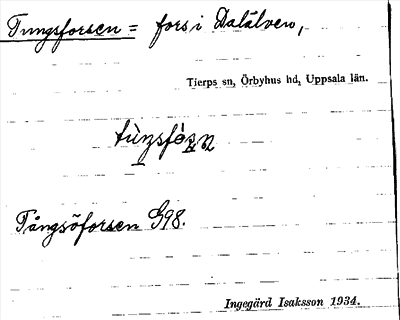 Tungsforsen = fors i Dalälven,
Tierps sn, Örbyhus hd, Uppsala län.
Tångsöforsen G98.
Ingegärd Isaksson 1934.